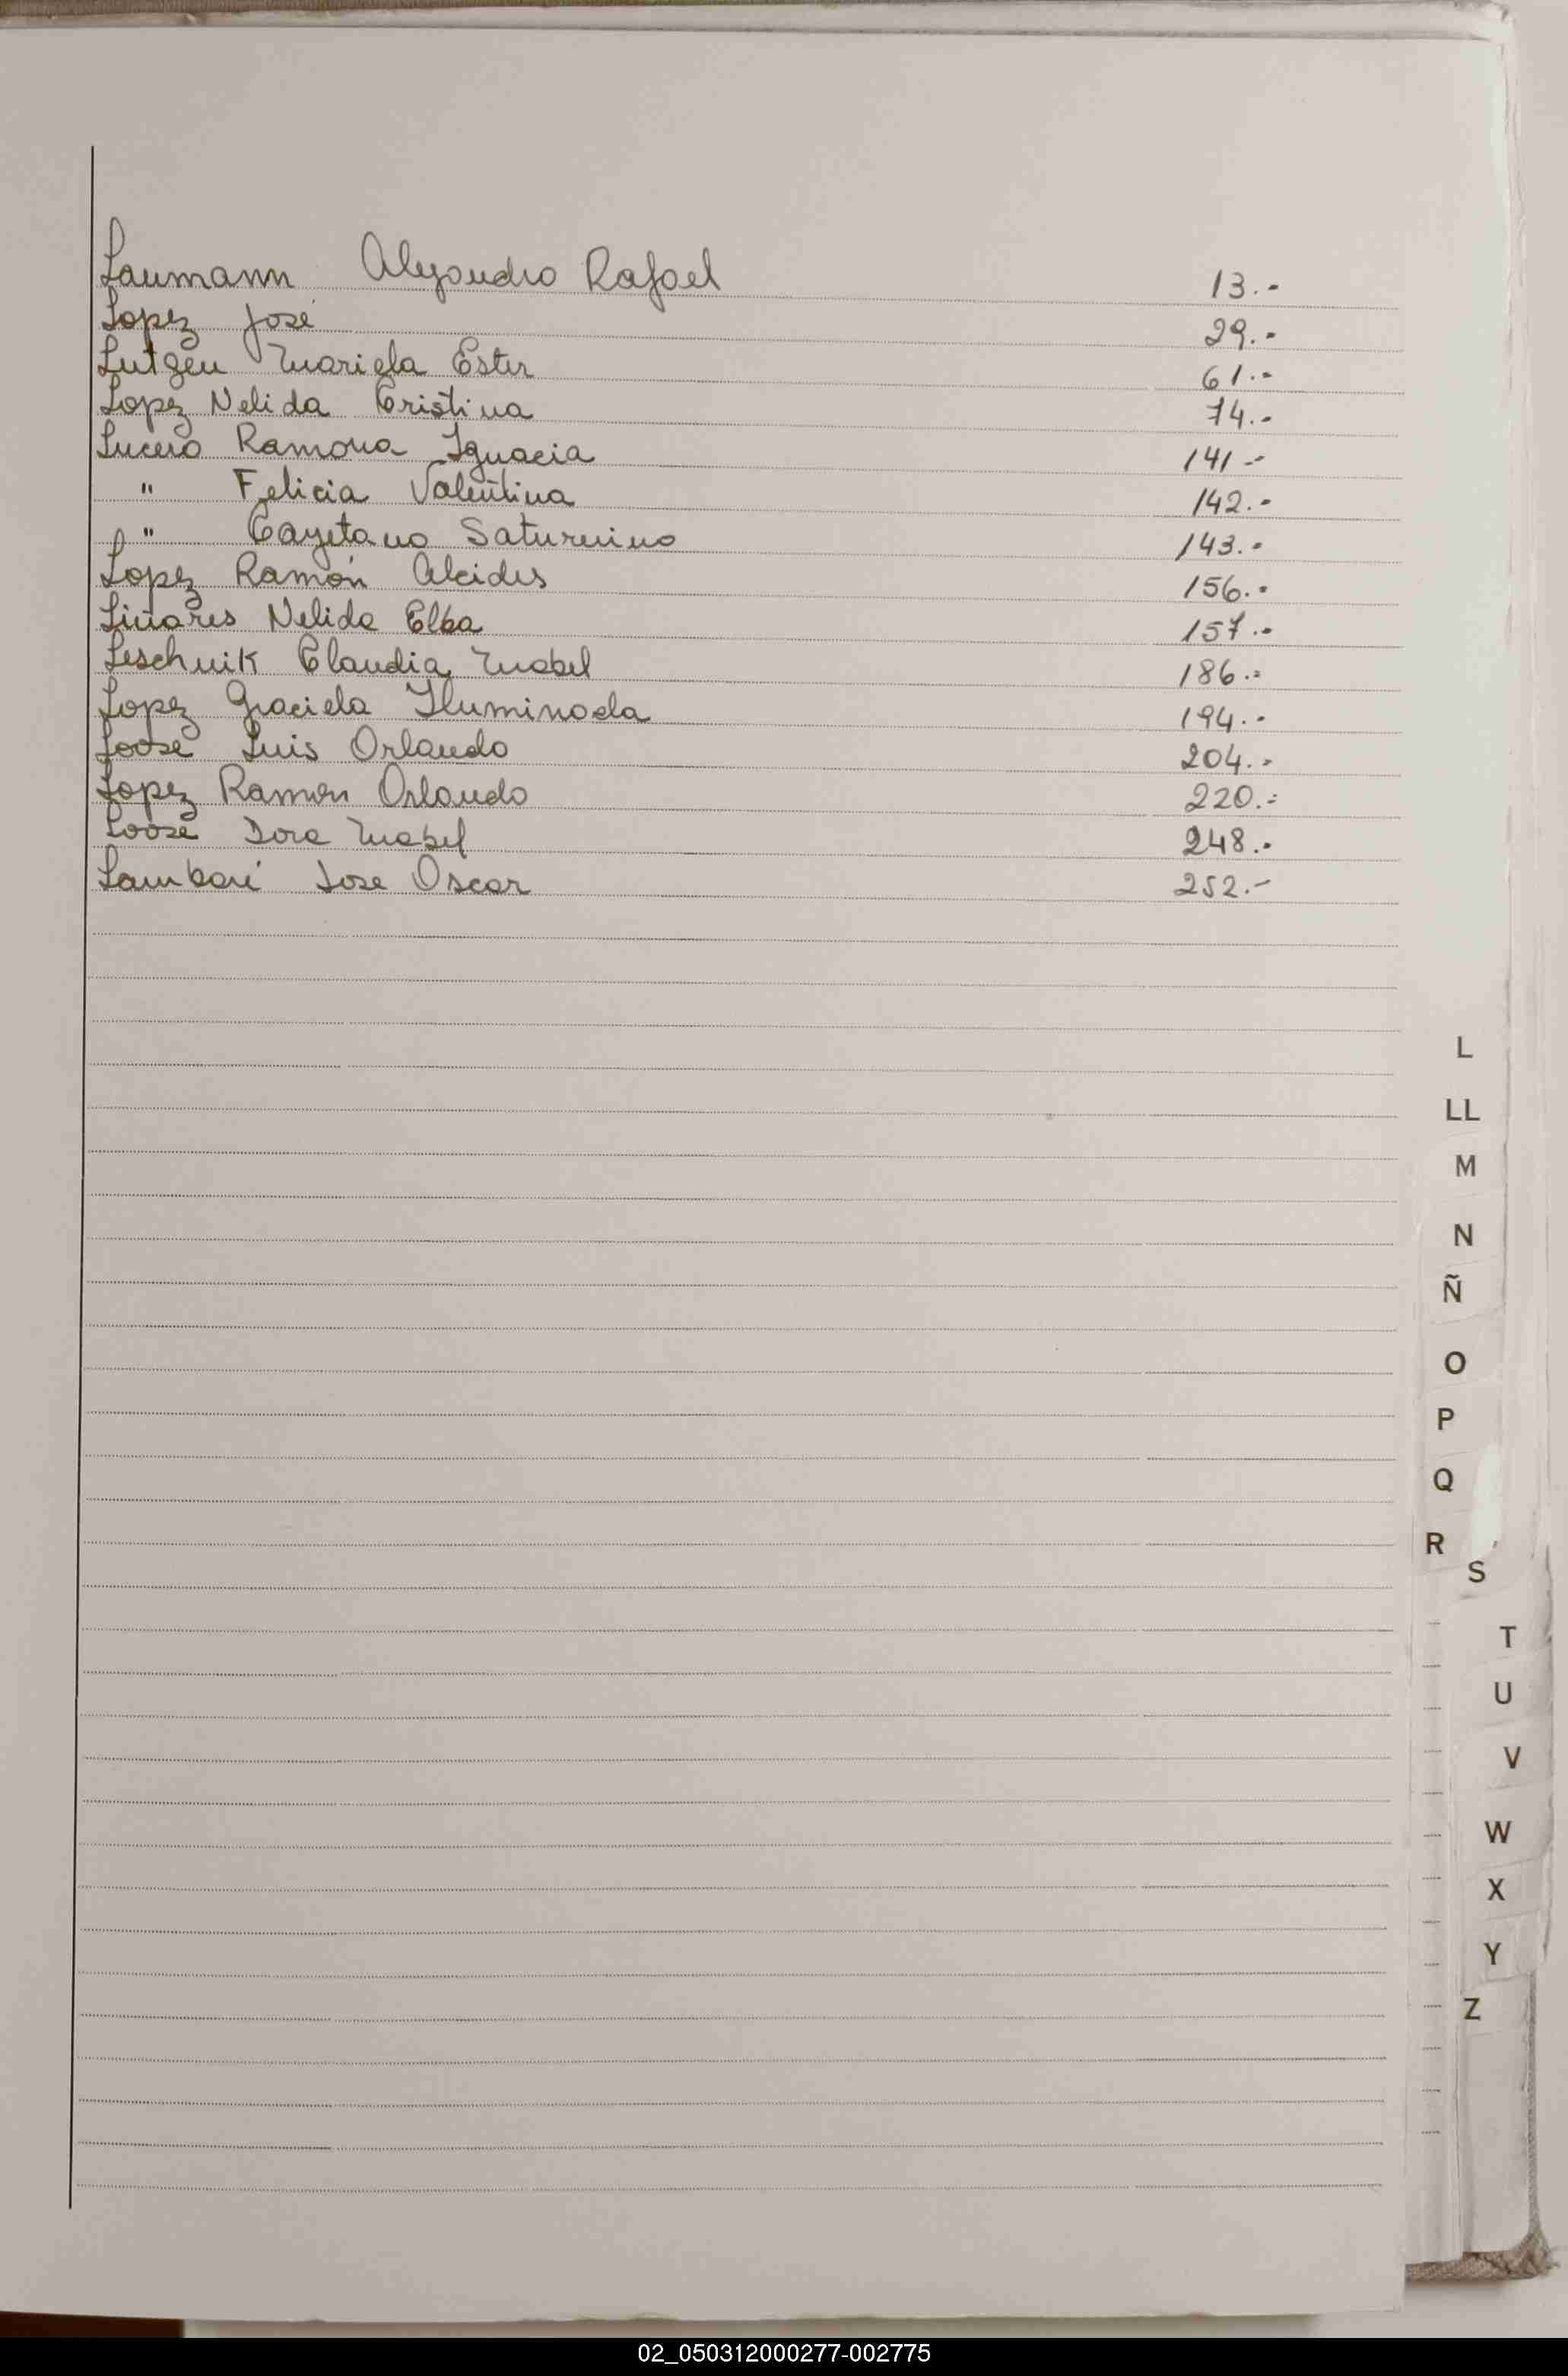 Laumann Alejandro Rafael 13.-
Lopez José 29.-
Lutzen Mariela Ester 61.-
Lopez Nelida Cristina 74.-
Lucero Ramona Ignacia 141.-
" Felicia Valentina 142.-
" Cayetano Saturnino 143.-
Lopez Ramón Alcides 156.-
Linares Nelida Elba 157.-
Leschnik Claudia Mabel 186.-
Lopez Graciela Iluminada 194.-
Loose Luis Orlando 204.-
Lopez Ramon Orlando 220.-
Loose Dora Mabel 248.-
Lambari Jose Oscar 252.-
L
LL
M
N
Ñ
O
P
Q
R
S
T
U
V
W
X
Y
Z
02_050312000277-002775